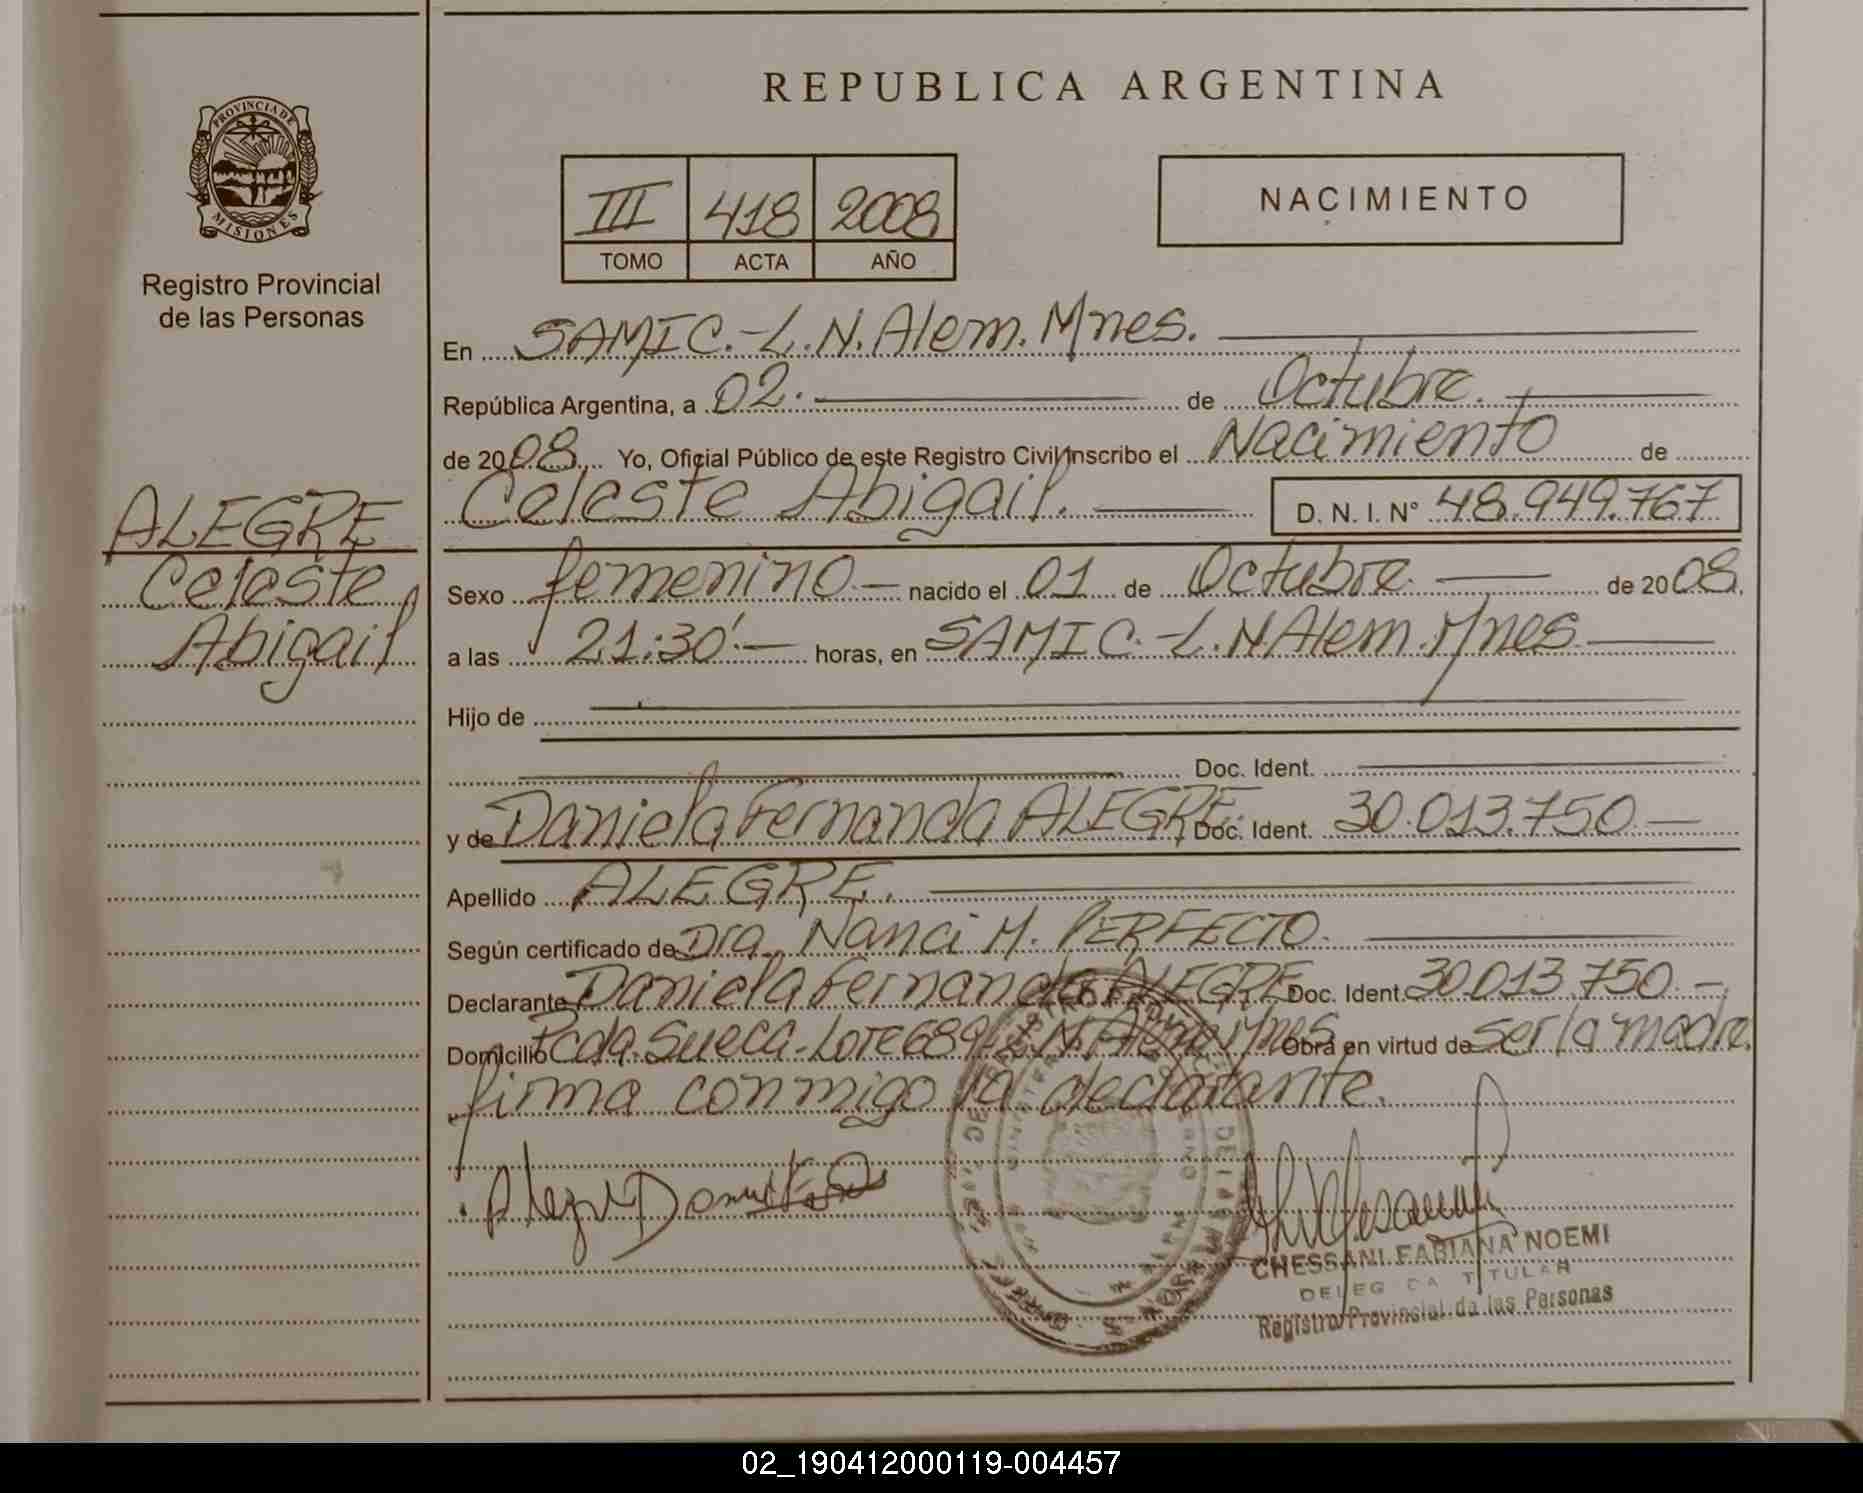 REPUBLICA ARGENTINA
PROVINCIA DE
MISIONES
Registro Provincial
de las Personas
III 418 2008
TOMO ACTA AÑO
NACIMIENTO
ALEGRE
Celeste
Abigail
En SAMIC.-L.N.Alem.Mnes.
República Argentina, a 02. de Octubre.
de 2008 Yo, Oficial Público de este Registro Civil Inscribo el Nacimiento de
Celeste Abigail. D. N. I. N° 48.949.767
Sexo femenino nacido el 01 de Octubre. de 2008.
a las 21:30'. horas, en SAMIC.-L.N.Alem.Mnes.
Hijo de
Doc. Ident.
y de Daniela Fernanda ALEGRE. Doc. Ident. 30.013.750
Apellido ALEGRE.
Según certificado de Dra. Nanci M. PERFECTO.
Declarante Daniela Fernanda ALEGRE Doc. Ident. 30.013.750
Domicilio Pcda. Sueca-Lote 689-L.N.Alem.Mnes Obra en virtud de ser la madre.
firma conmigo la declarante.
CHESSANI FABIANA NOEMI
DELEGADA TITULAR
Registro Provincial de las Personas
02_190412000119-004457